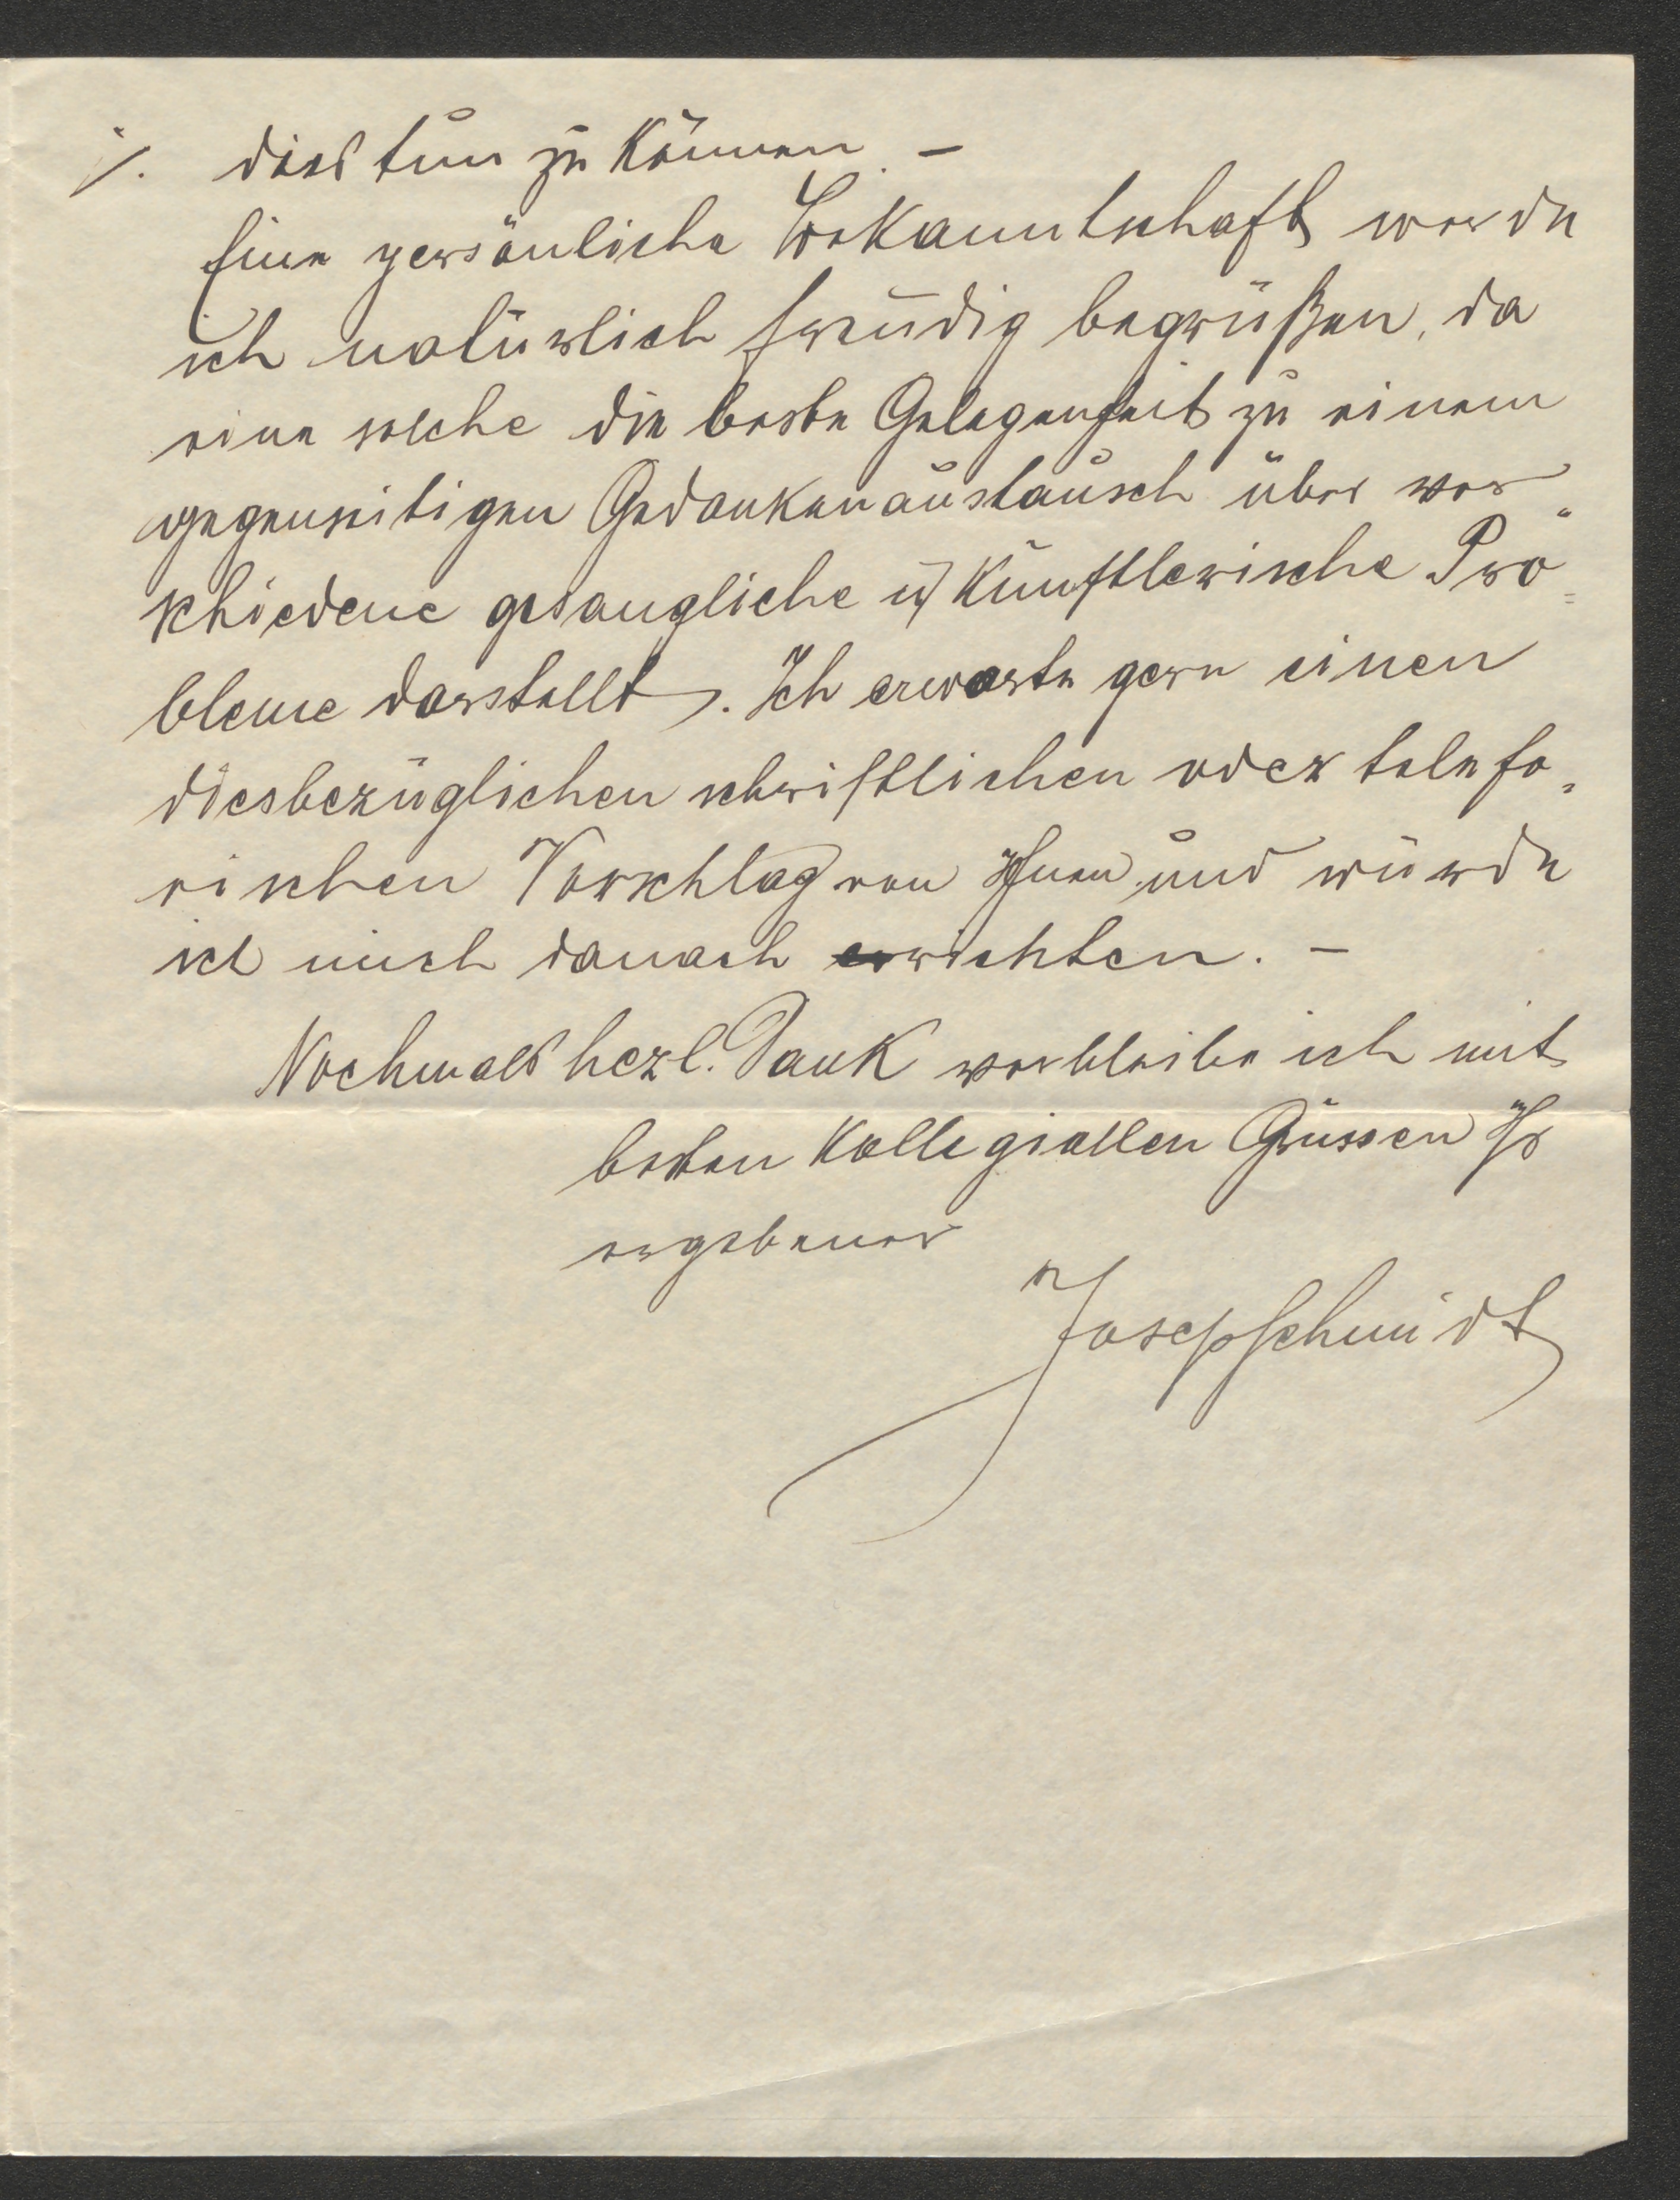 ⁒ dies tun zu können. –
Eine persönliche Bekanntschaft werde
ich natürlich freudig begrüßen, da
eine solche die beste Gelegenheit zu einem
gegenseitigen Gedankenaustausch über ver-
schiedene gesangliche u künstlerische Pro=
bleme darstellt. Ich erwarte gern einen
diesbezüglichen schriftlichen oder telefo-
nischen Vorschlag von Ihnen und würde
ich mich danach richten. –
Nochmals hezl. Dank verbleibe ich mit
besten kollegiallen Grüssen Ihr
ergebener
Joseph Schmidt